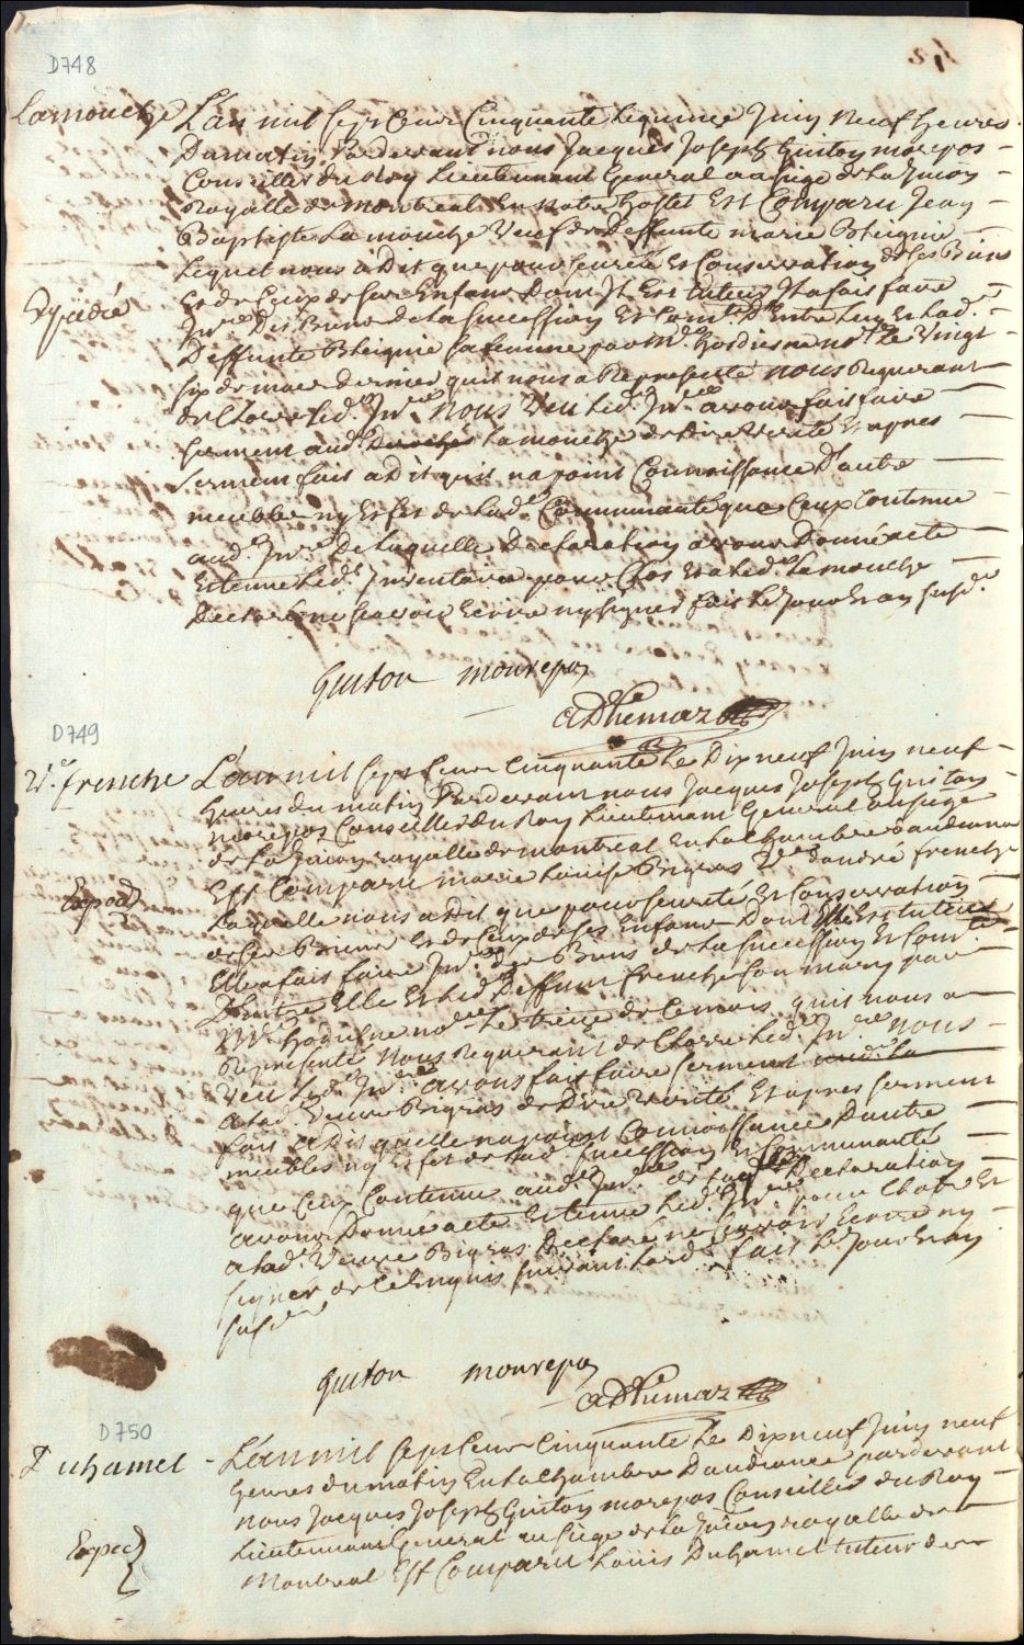 D748
Lamouche L'an mil sept Cens Cinquante le quinze Juin Neuf heures
Du matin Pardevant nous Jacques Joseph Guiton morepos
Conseiller du Roy Lieutenant General au siege de la Juron
Royalle de montreal En notre hostel Est Comparu Jean
Baptiste Lamouche Veuf de Deffunte marie
Lequel nous a Dit que pour seureté Et Conservation de ses Biens
Expedié Et de Ceux de ses Enfans Dont Il Est tuteur Il a fait faire
Inv.re Des Biens de la succession Et Com.té D'Entre luy Et lad.e
Deffunte sa femme par M.e hodiesne no.re Le Vingt
six de mars dernier quil nous a Representé nous Requerant
de Clorre led.t Inv.re nous Veu led.t Inv.re avons fait faire
serment aud.t Lamouche de Dire Verité Et apres
serment fait a Dit quil na point Connoissance D'autre
meubles ny Effet de lad.e Communauté que Ceux Contenus
aud.t Inv.re De laquelle Declaration avons Donné acte
Et tenu led.t Inventaire pour Clos Et a led.t Lamouche
Declaré ne scavoir Ecrire ny signer fait le Jour Et an susd.t
Guiton monrepos
ADhemar
D749
V.e frenche L'an mil sept Cens Cinquante Le Dixneuf Juin neuf
heures du matin Pardevant nous Jacques Joseph Guiton
morepos Conseiller du Roy Lieutenant General au siege
de la Juron royalle de montreal En la Chambre daudiance
Est Comparu marie Louise Bigras V.e dandré frenche
Exped Laquelle nous a Dit que pour seureté Et Conservation
de ses Biens Et de Ceux de ses Enfans Dont Elle Est tutrice
Elle a fait faire Inv.re des Biens de la succession Et Com.té
D'Entre Elle Et led.t Deffunt frenche son mary par
M.e hodiesne no.re Le treize de Ce mois quil nous a
Representé nous Requerant de Clorre led.t Inv.re nous
Veu led.t Inv.re avons fait faire serment
a lad.e Veuve Bigras de Dire Verité Et apres serment
fait a Dit quelle na point Connoissance Dautre
meubles ny Effet de lad.e succession Et Communauté
que Ceux Contenus aud.t Inv.re de laq.le Declaration
avons Donné acte Et tenu led.t Inv.re pour Clos Et
a lad.e Veuve Bigras Declaré ne scavoir Ecrire ny
signer de Ce Enquis suivant lord.e fait le Jour Et an
susd.t
Guiton monrepos
ADhemar
D750
Duhamel - L'an mil sept Cens Cinquante Le Dixneuf Juin neuf
heures du matin En la Chambre Daudiance pardevant
nous Jacques Joseph Guiton morepos Conseiller du Roy
Exped Lieutenant General au siege de la Juron royalle de
Montreal Est Comparu Loüis Duhamel tuteur de